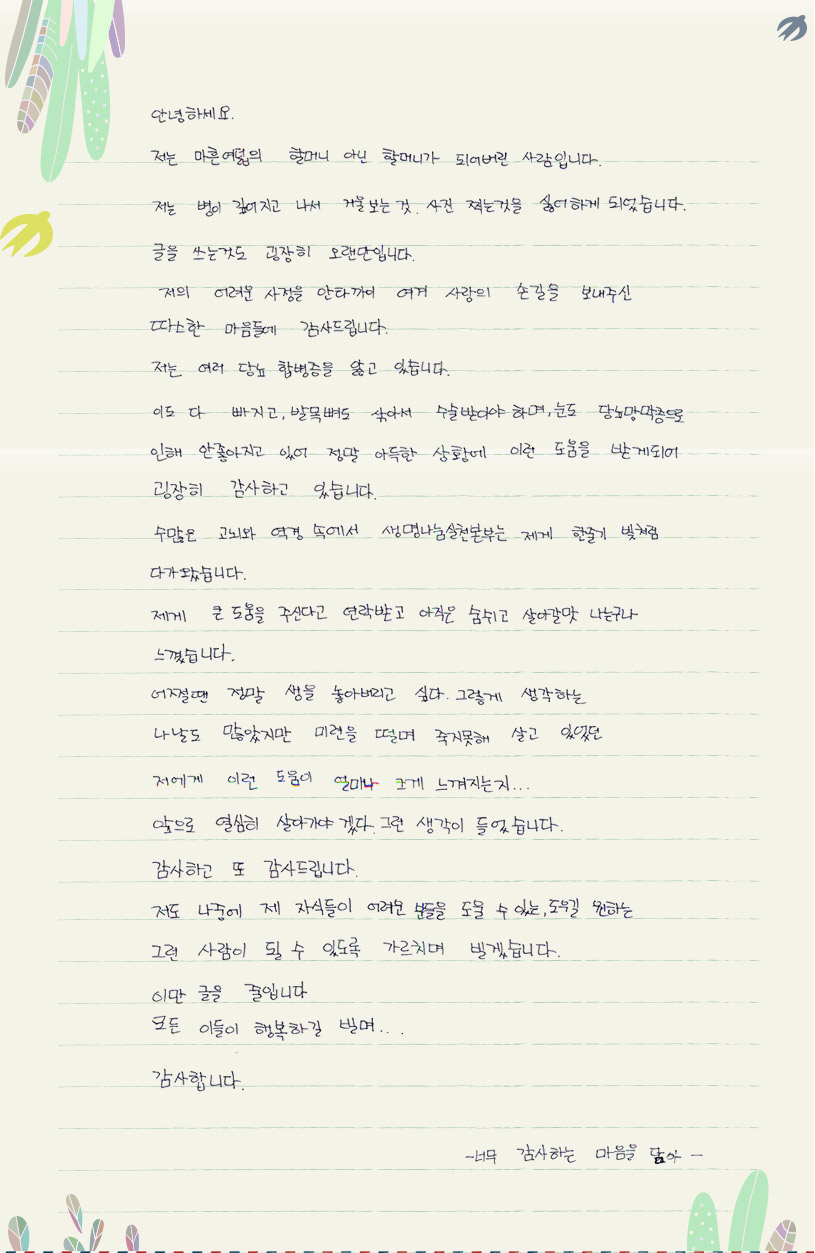 안녕하세요.
저는 마흔여덟의 할머니 아닌 할머니가 되어버린 사람입니다.
저는 병이 깊어지고 나서 거울보는것, 사진 찍는것을 싫어하게 되었습니다.
글을 쓰는것도 굉장히 오랜만입니다.
저의 어려운 사정을 안타까이 여겨 사랑의 손길을 보내주신
따스한 마음들에 감사드립니다.
저는 여러 당뇨 합병증을 앓고 있습니다.
이도 다 빠지고, 발목뼈도 삭아서 수술받아야 하며, 눈도 당뇨망막증으로
인해 안좋아지고 있어 정말 아득한 상황에 이런 도움을 받게되어
굉장히 감사하고 있습니다.
수많은 고뇌와 역경 속에서 생명나눔실천본부는 제게 한줄기 빛처럼
다가왔습니다.
제게 큰 도움을 주신다고 연락받고 아직은 숨쉬고 살아갈맛 나는구나
느꼈습니다.
어쩔땐 정말 생을 놓아버리고 싶다. 그렇게 생각하는
나날도 많았지만 미련을 떨며 죽지못해 살고 있었던
저에게 이런 도움이 얼마나 크게 느껴지는지...
앞으로 열심히 살아가야 겠다. 그런 생각이 들었습니다.
감사하고 또 감사드립니다.
저도 나중에 제 자식들이 어려운 분들을 도울 수 있는, 도우길 원하는
그런 사람이 될 수 있도록 가르치며 빌겠습니다.
이만 글을 줄입니다
모든 이들이 행복하길 빌며...
감사합니다.
-너무 감사하는 마음을 담아-